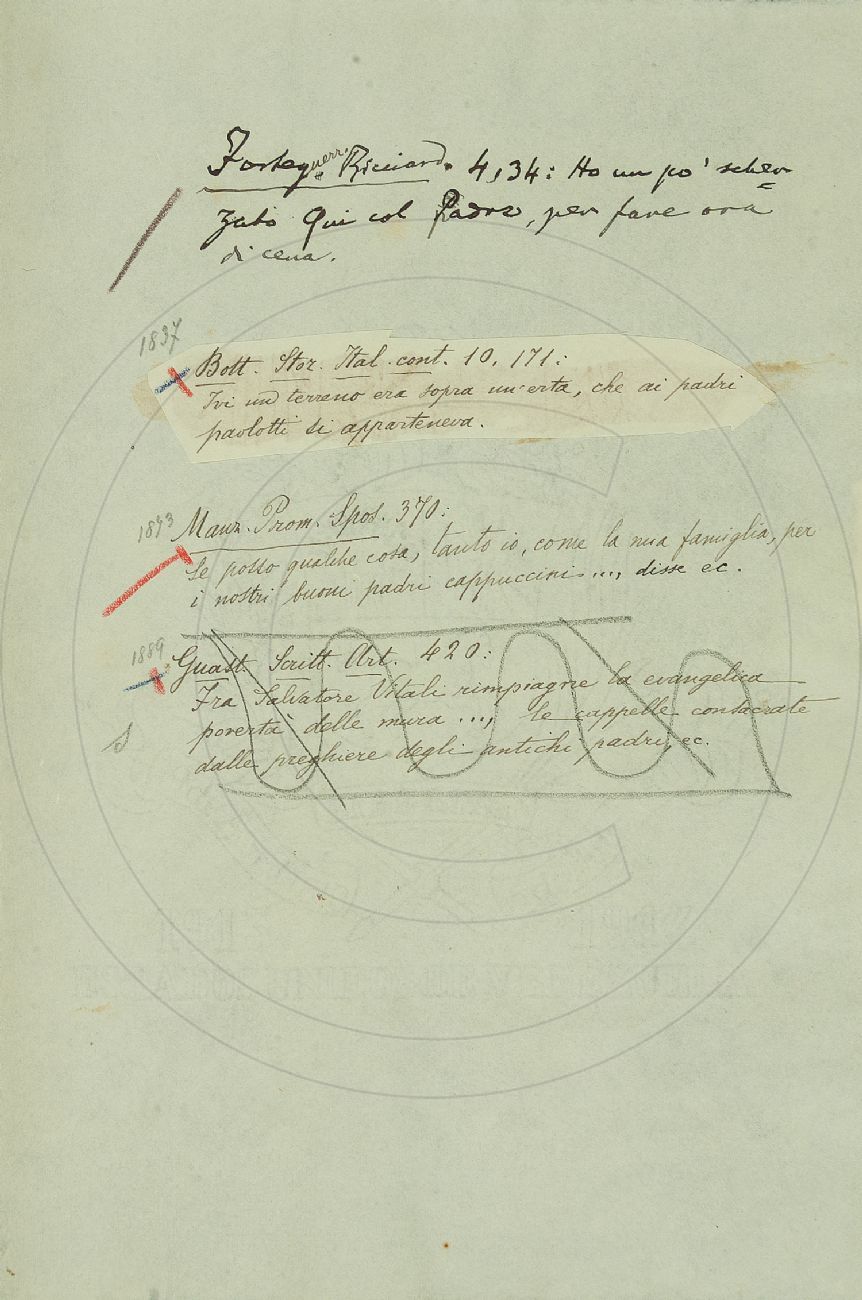 Forteguerr. Ricciard. 4, 34: Ho un po' scher-
zato Qui col Padre, per fare ora
di cena.
1837
Bott. Stor. Ital. cont. 10, 171:
Ivi un terreno era sopra un'erta, che ai padri
paolotti si apparteneva.
1843
Manz. Prom. Spos. 370:
Se posso qualche cosa, tanto io, come la mia famiglia, per
i nostri buoni padri cappuccini ..., disse ec.
1889
Guast. Scritt. Art. 420:
Fra Salvatore Vitali rimpiagne la evangelica
povertà delle mura ..., le cappelle consacrate
dalle preghiere degli antichi padri, ec.